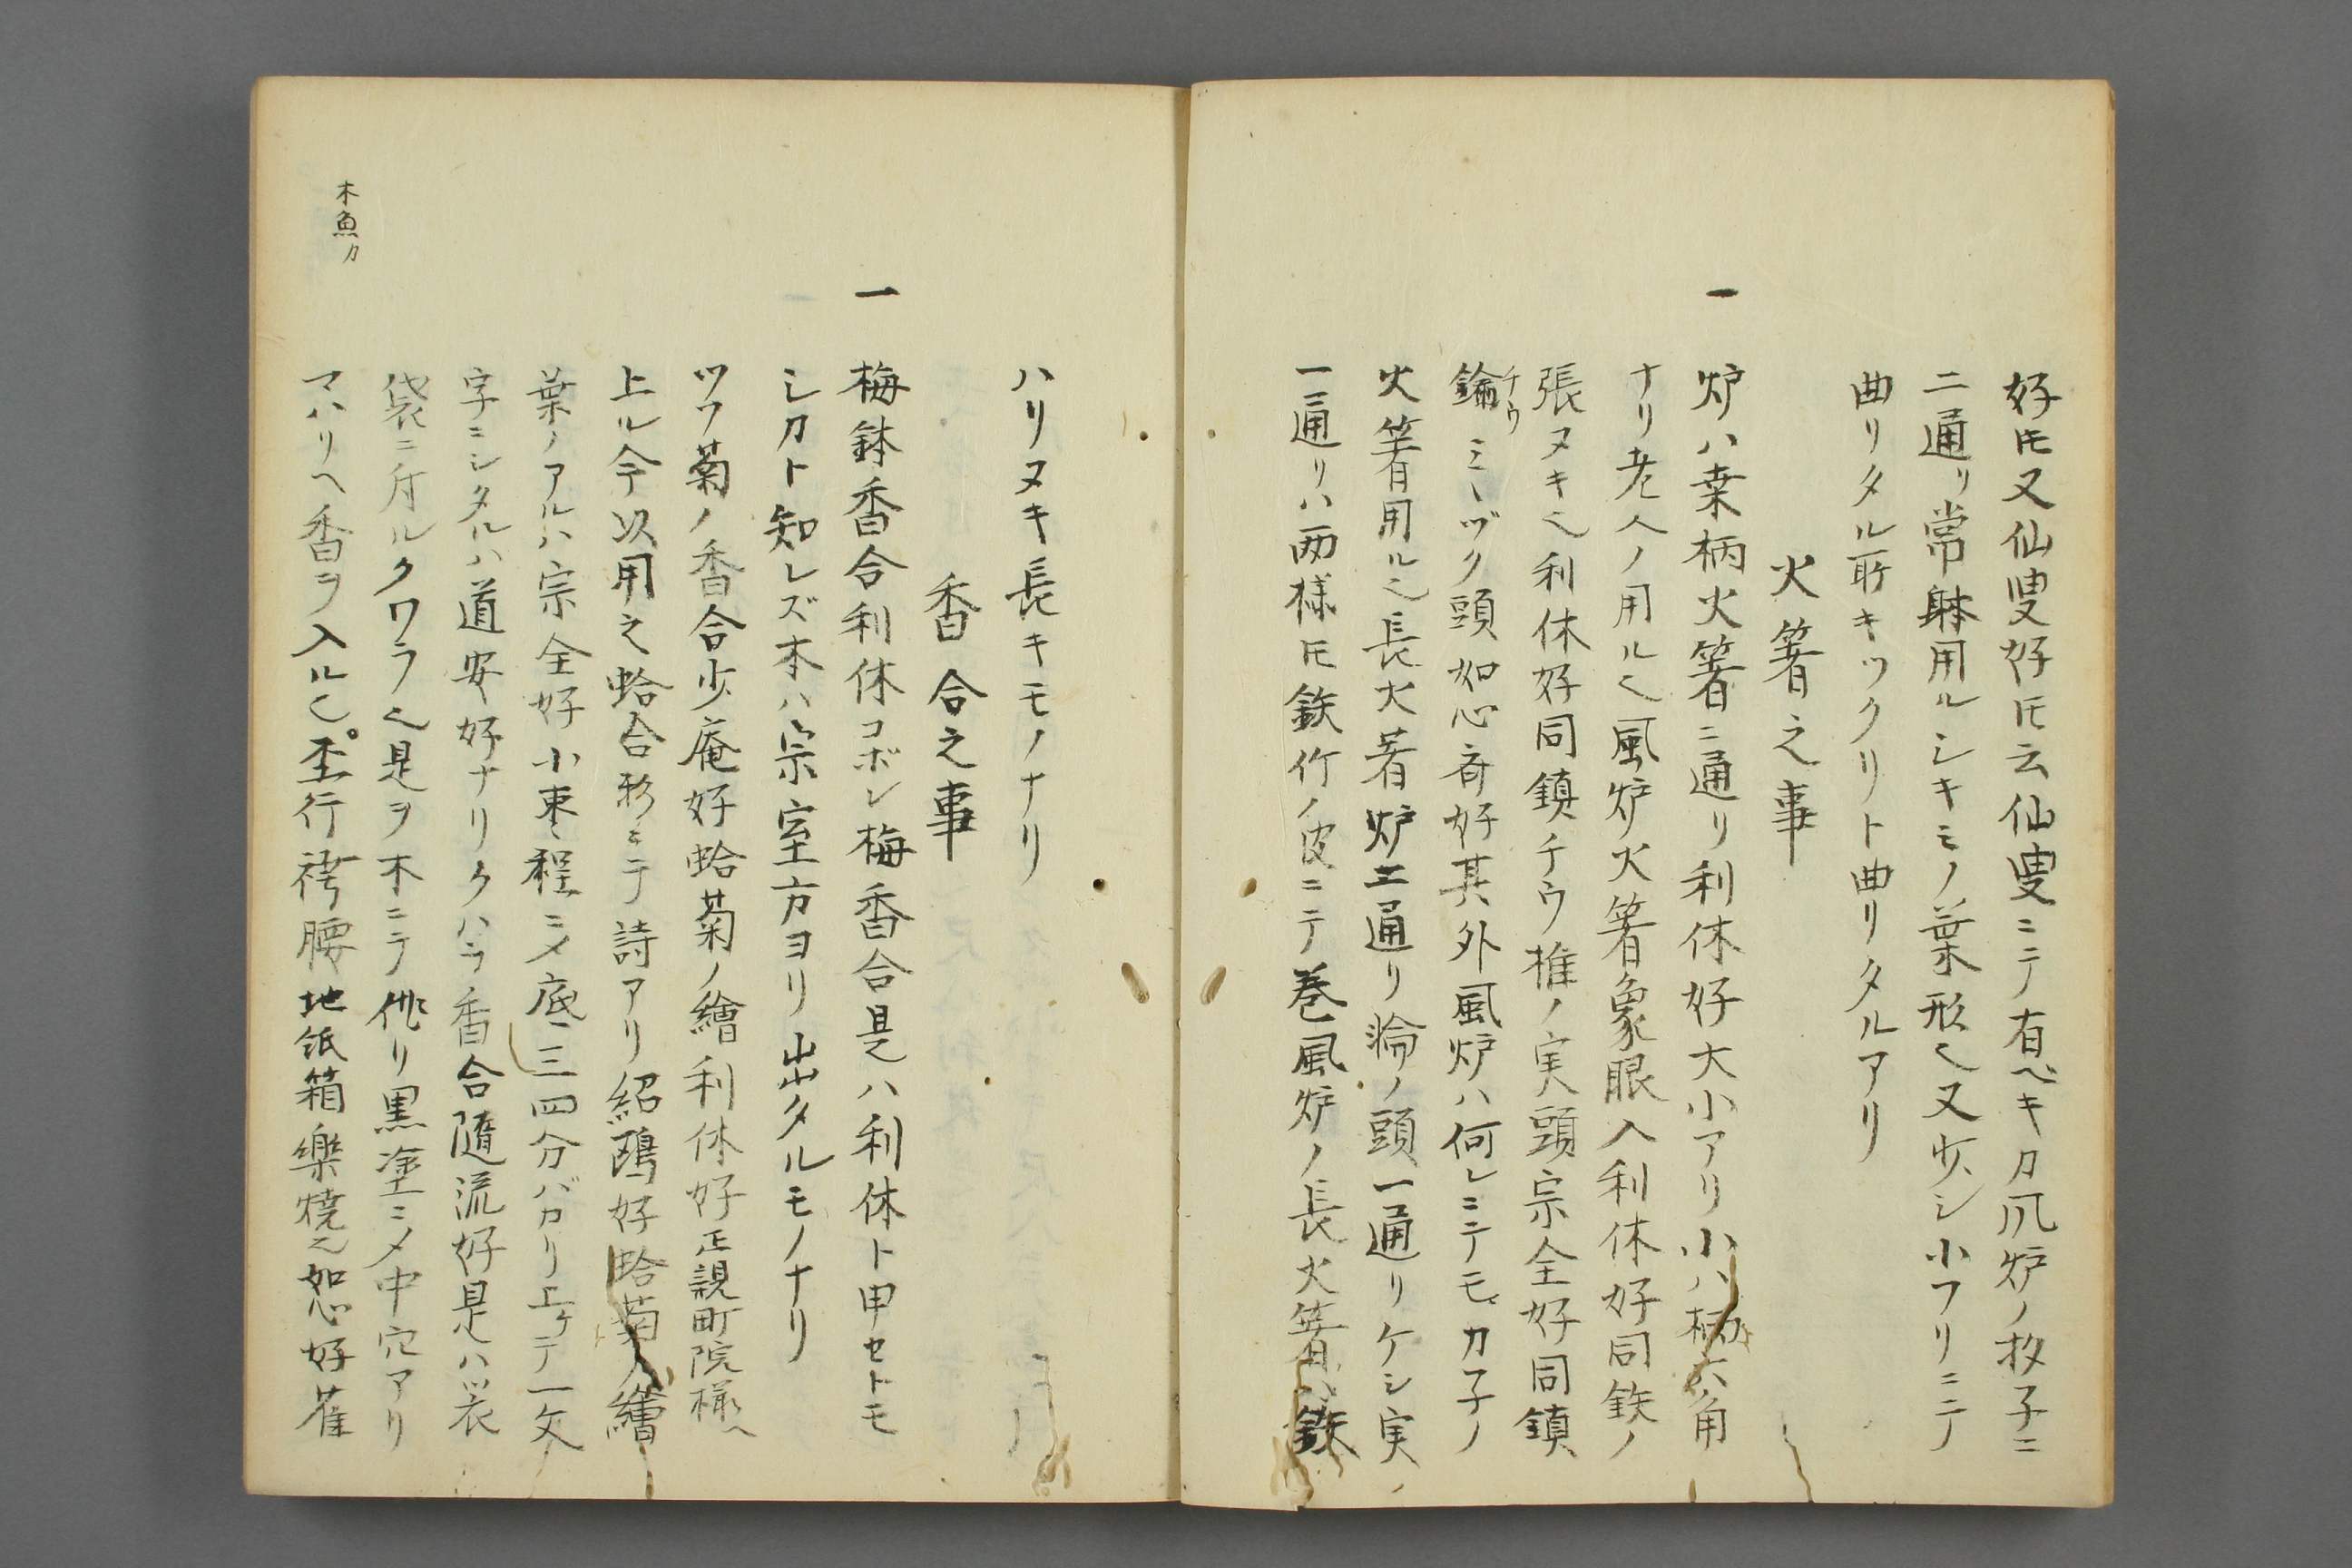 好ﾄﾓ又仙叟好ﾄﾓ云仙叟ニテ有ベキカ风炉ノ杓子ニ
二通リ常躰用ルシキミノ葉形也又少シ小フリニテ
曲リタル所キツクリト曲リタルアリ
火箸之事
一 炉ハ桒柄火箸二通リ利休好大小アリ小ハ柄六角
ナリ老人ノ用ル也風炉火箸象眼入利休好同鉄ノ
張ヌキ也利休好同鎮チウ椎ノ実頭宗全好同鎮
鍮チウミヽヅク頭如心斎好其外風炉ハ何レニテモカ子ノ
火箸用ル也長火箸炉二通リ輪ノ頭一通リケシ実ノ
一通リハ両様ﾄﾓ鉄竹ノ皮ニテ巻風炉ノ長火箸ハ鉄
ハリヌキ長キモノナリ
香合之事
一 梅鉢香合利休コボレ梅香合是ハ利休ト申セトモ
シカト知レズ本ハ宗室方ヨリ出タルモノナリ
ツフ菊ノ香合少庵好蛤菊ノ繪利休好正親町院様ヘ
上ル今以用之蛤合形ニテ詩アリ紹鴎好蛤菊ノ繪
葉ノアルハ宗全好小棗程ニメ底ニ三四分バカリ上ケテ一文
字ニシタルハ道安好ナリクハラ香合随流好是ハ袈
袋ニ付ルクワラ也是ヲ木ニテ作リ黒塗ニメ中穴アリ
マハリヘ香ヲ入ル也。行袴腰地紙箱樂焼也如心好雀
木魚カ